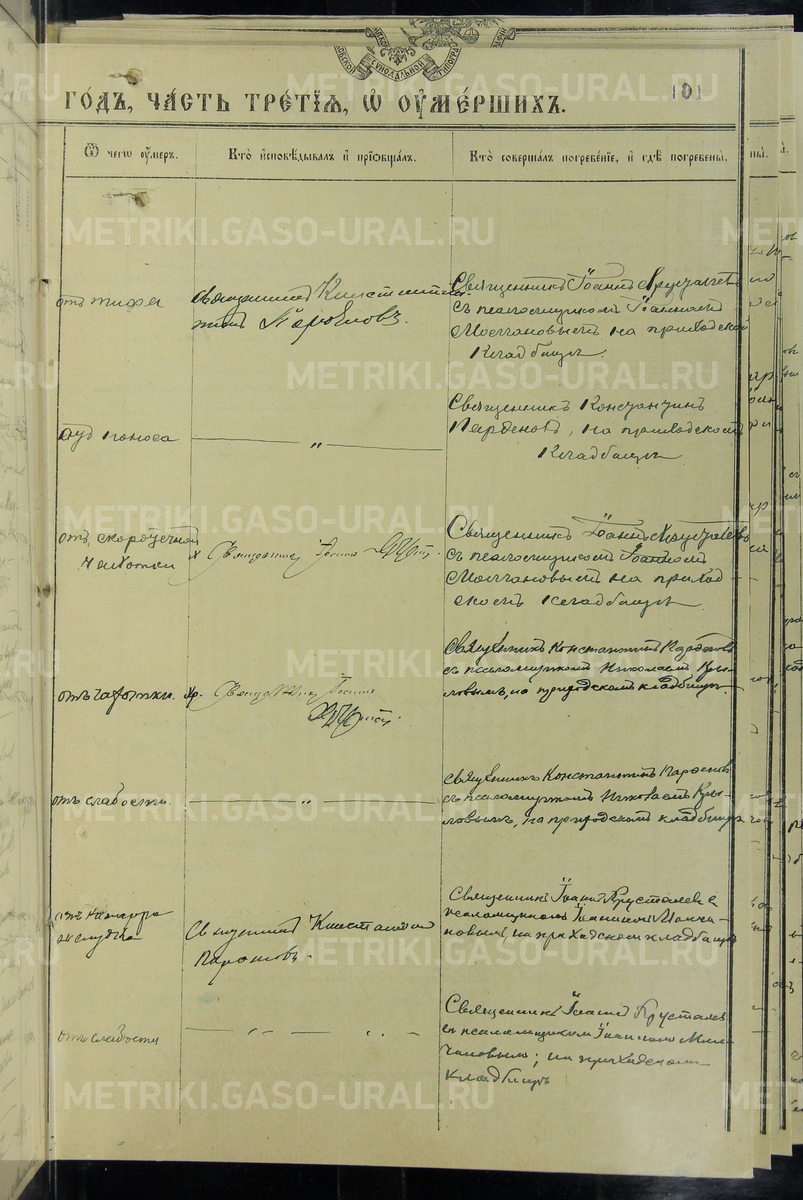 СѴНОДАЛЬНОЙ
ГО́ДЪ, ЧА́СТЬ ТРЕ́ТІѦ, Ѡ҆ ОУ҆МЕ́РШИХЪ.
101
Ѿ чегѡ̀ оу҆́меръ.
Кто̀ и҆сповѣ́дывалъ и҆ прїѡбща́лъ.
Кто̀ соверша́лъ погребе́нїе, и҆ гдѣ̀ погребены̀.
отъ тифа
Священникъ Константинъ
Парѳеновъ.
Священникъ Іоаннъ Хрусталевъ
съ псаломщикомъ Іоанномъ
Молчановымъ на приходской
кладбищѣ.
отъ поноса
— „ —
Священникъ Константинъ
Парѳеновъ, на приходскомъ
кладбищѣ
отъ скоротечной
чахотки
Священникъ Іоаннъ
Священникъ Іоаннъ Хрусталевъ
съ псаломщикомъ Іоанномъ
Молчановымъ на приход
скомъ кладбищѣ
отъ чахотки.
Священникъ Іоаннъ
Священникъ Константинъ Парѳеновъ
съ псаломщикомъ Николаемъ Кры-
ловымъ, на приходскомъ кладбищѣ.
отъ слабости.
— „ —
Священникъ Константинъ Парѳеновъ
съ псаломщикомъ Николаемъ Кры-
ловымъ, на приходскомъ кладбищѣ
отъ катарра
желудка
Священникъ Константинъ
Парѳеновъ.
Священникъ Іоаннъ Хрусталевъ с
псаломщикомъ Іоанномъ Молча-
новымъ, на приходскомъ кладбищѣ
отъ слабости
— „ — „ —
Священникъ Іоаннъ Хрусталевъ
съ псаломщикомъ Іоанномъ Мол-
чановымъ; на приходскомъ
кладбищѣ
METRIKI.GASO-URAL.RU